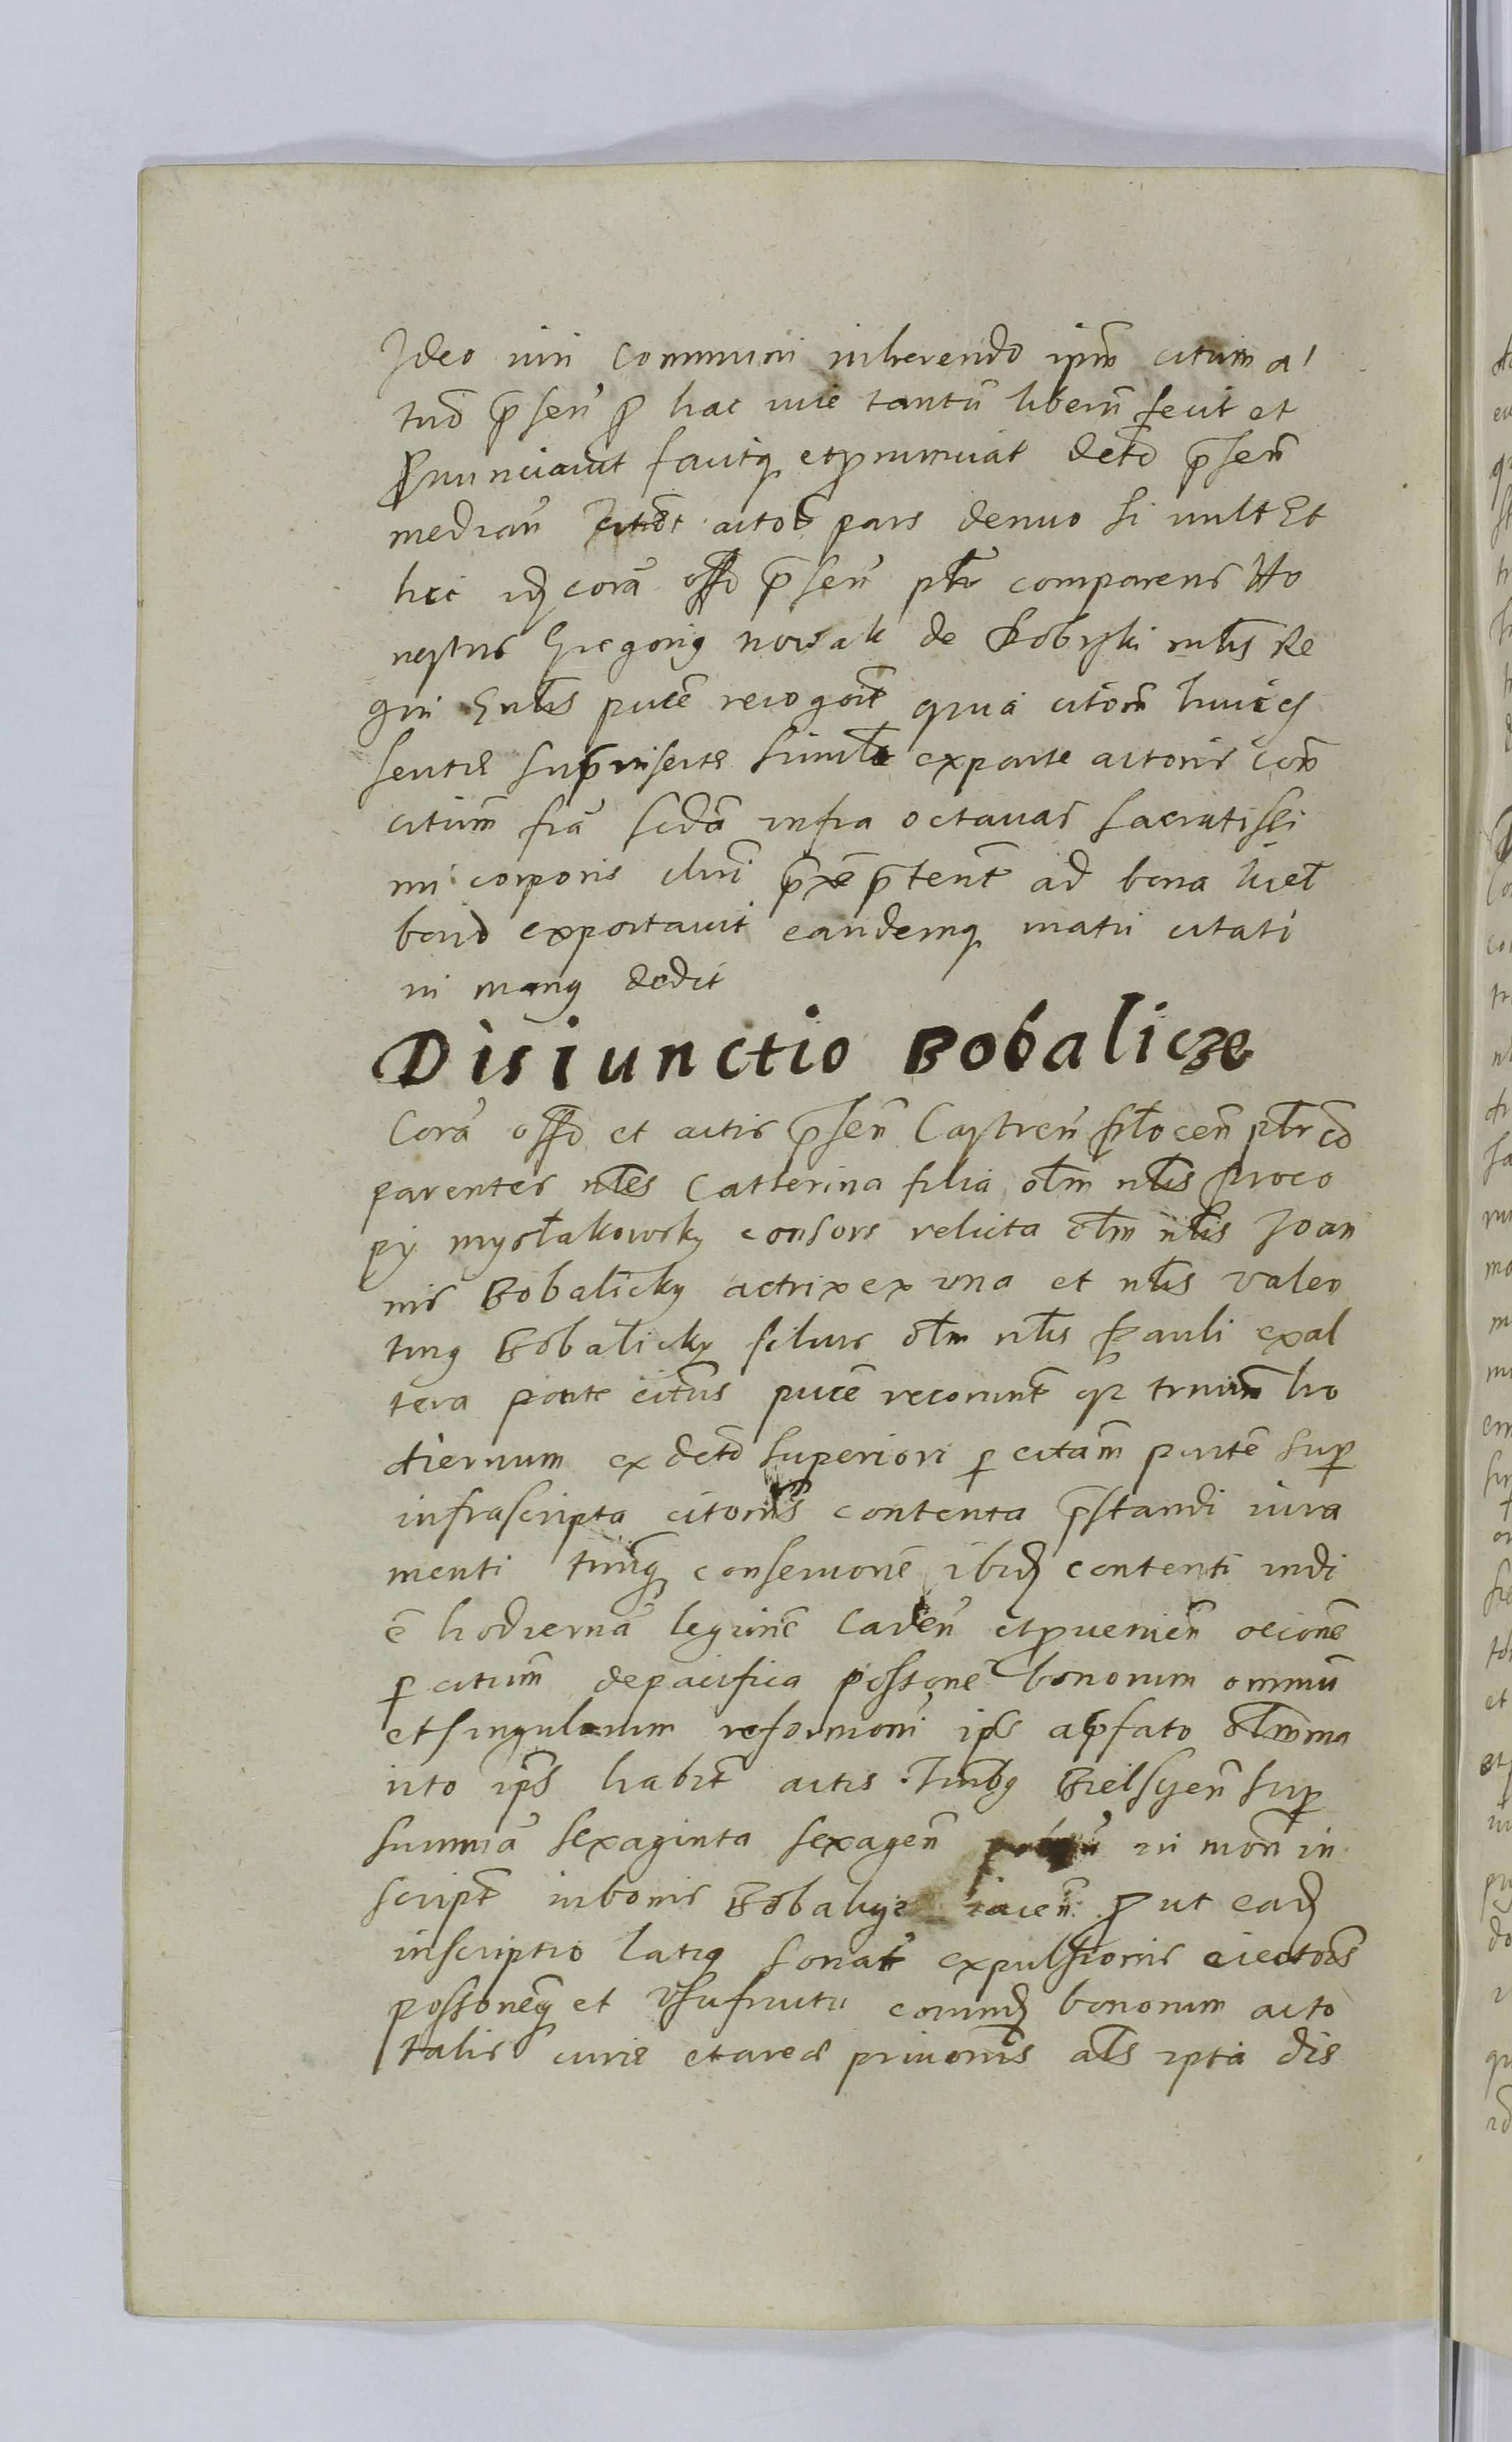 Ideo iuri communi inherendo ipm̃ citum a
tnõ p̃sen̄ ꝓ hac vice tantū liberū fecit et
ꝓnunciavit facitqꝫ et ꝓnunciat decto p̃sen̄
median̄ actor pars denuo si vult Et
hic idꝫ corā offo p̃sen̄ pl̄r comparens Ho
nestus Gregorius nowak de Kobyliñ mlis̄ Re
gni gnlis̄ pucē recogoīt quia citom̄ huic
sentē suprinserte siml̄ ex parte actoris con̄
citum̄ fiā scdā infra octavas sacratissi
mi corporis chri p̃xē p̃terit̄ ad bona
bona exportavit eandemqꝫ matri citati
in manus dedit
Disiunctio Bobalicze
Corā offo et actis p̃sen̄ Castren̄ plocen̄ pl̄r cō
parentes nłes Catterina filia olm̄ nłis Proco
py mysłakowsky consors relicta olm̄ nłis Joan
nis Bobalicky actrix ex una et nłis Valen
tinus Bobalicky filius olm̄ nłis Pauli ex al
tera parte citus̄ pucē recorunt̄ qꝫ trmm̄ ho
diernum ex decto superiori ꝑ citam̄ partē sup
infrascripta citonis̄ contenta p̃standi iura
menti trmqꝫ conservonē ibidꝫ contenti in di
ē hodiernā legitimē caden̄ et ꝓvenien̄ ocione
ꝑ citum̄ de pacifica possone bonorum omniū
et singulorum reformoni ips̄ a p̃fato olm̄ ma
rito ips̄ habit̄ actis Trmbus Bielscen̄ sup
summā sexaginta sexagen̄ in mon̄ in
script̄ in bonis Bobalicze iacen̄ ꝓut eadꝫ
inscriptio latius sonat expulsionis eiectonis̄
possoneqꝫ et Usufructu eorundꝫ bonorum acto
talis iuris et ared privonis̄ als̄ ipta dis